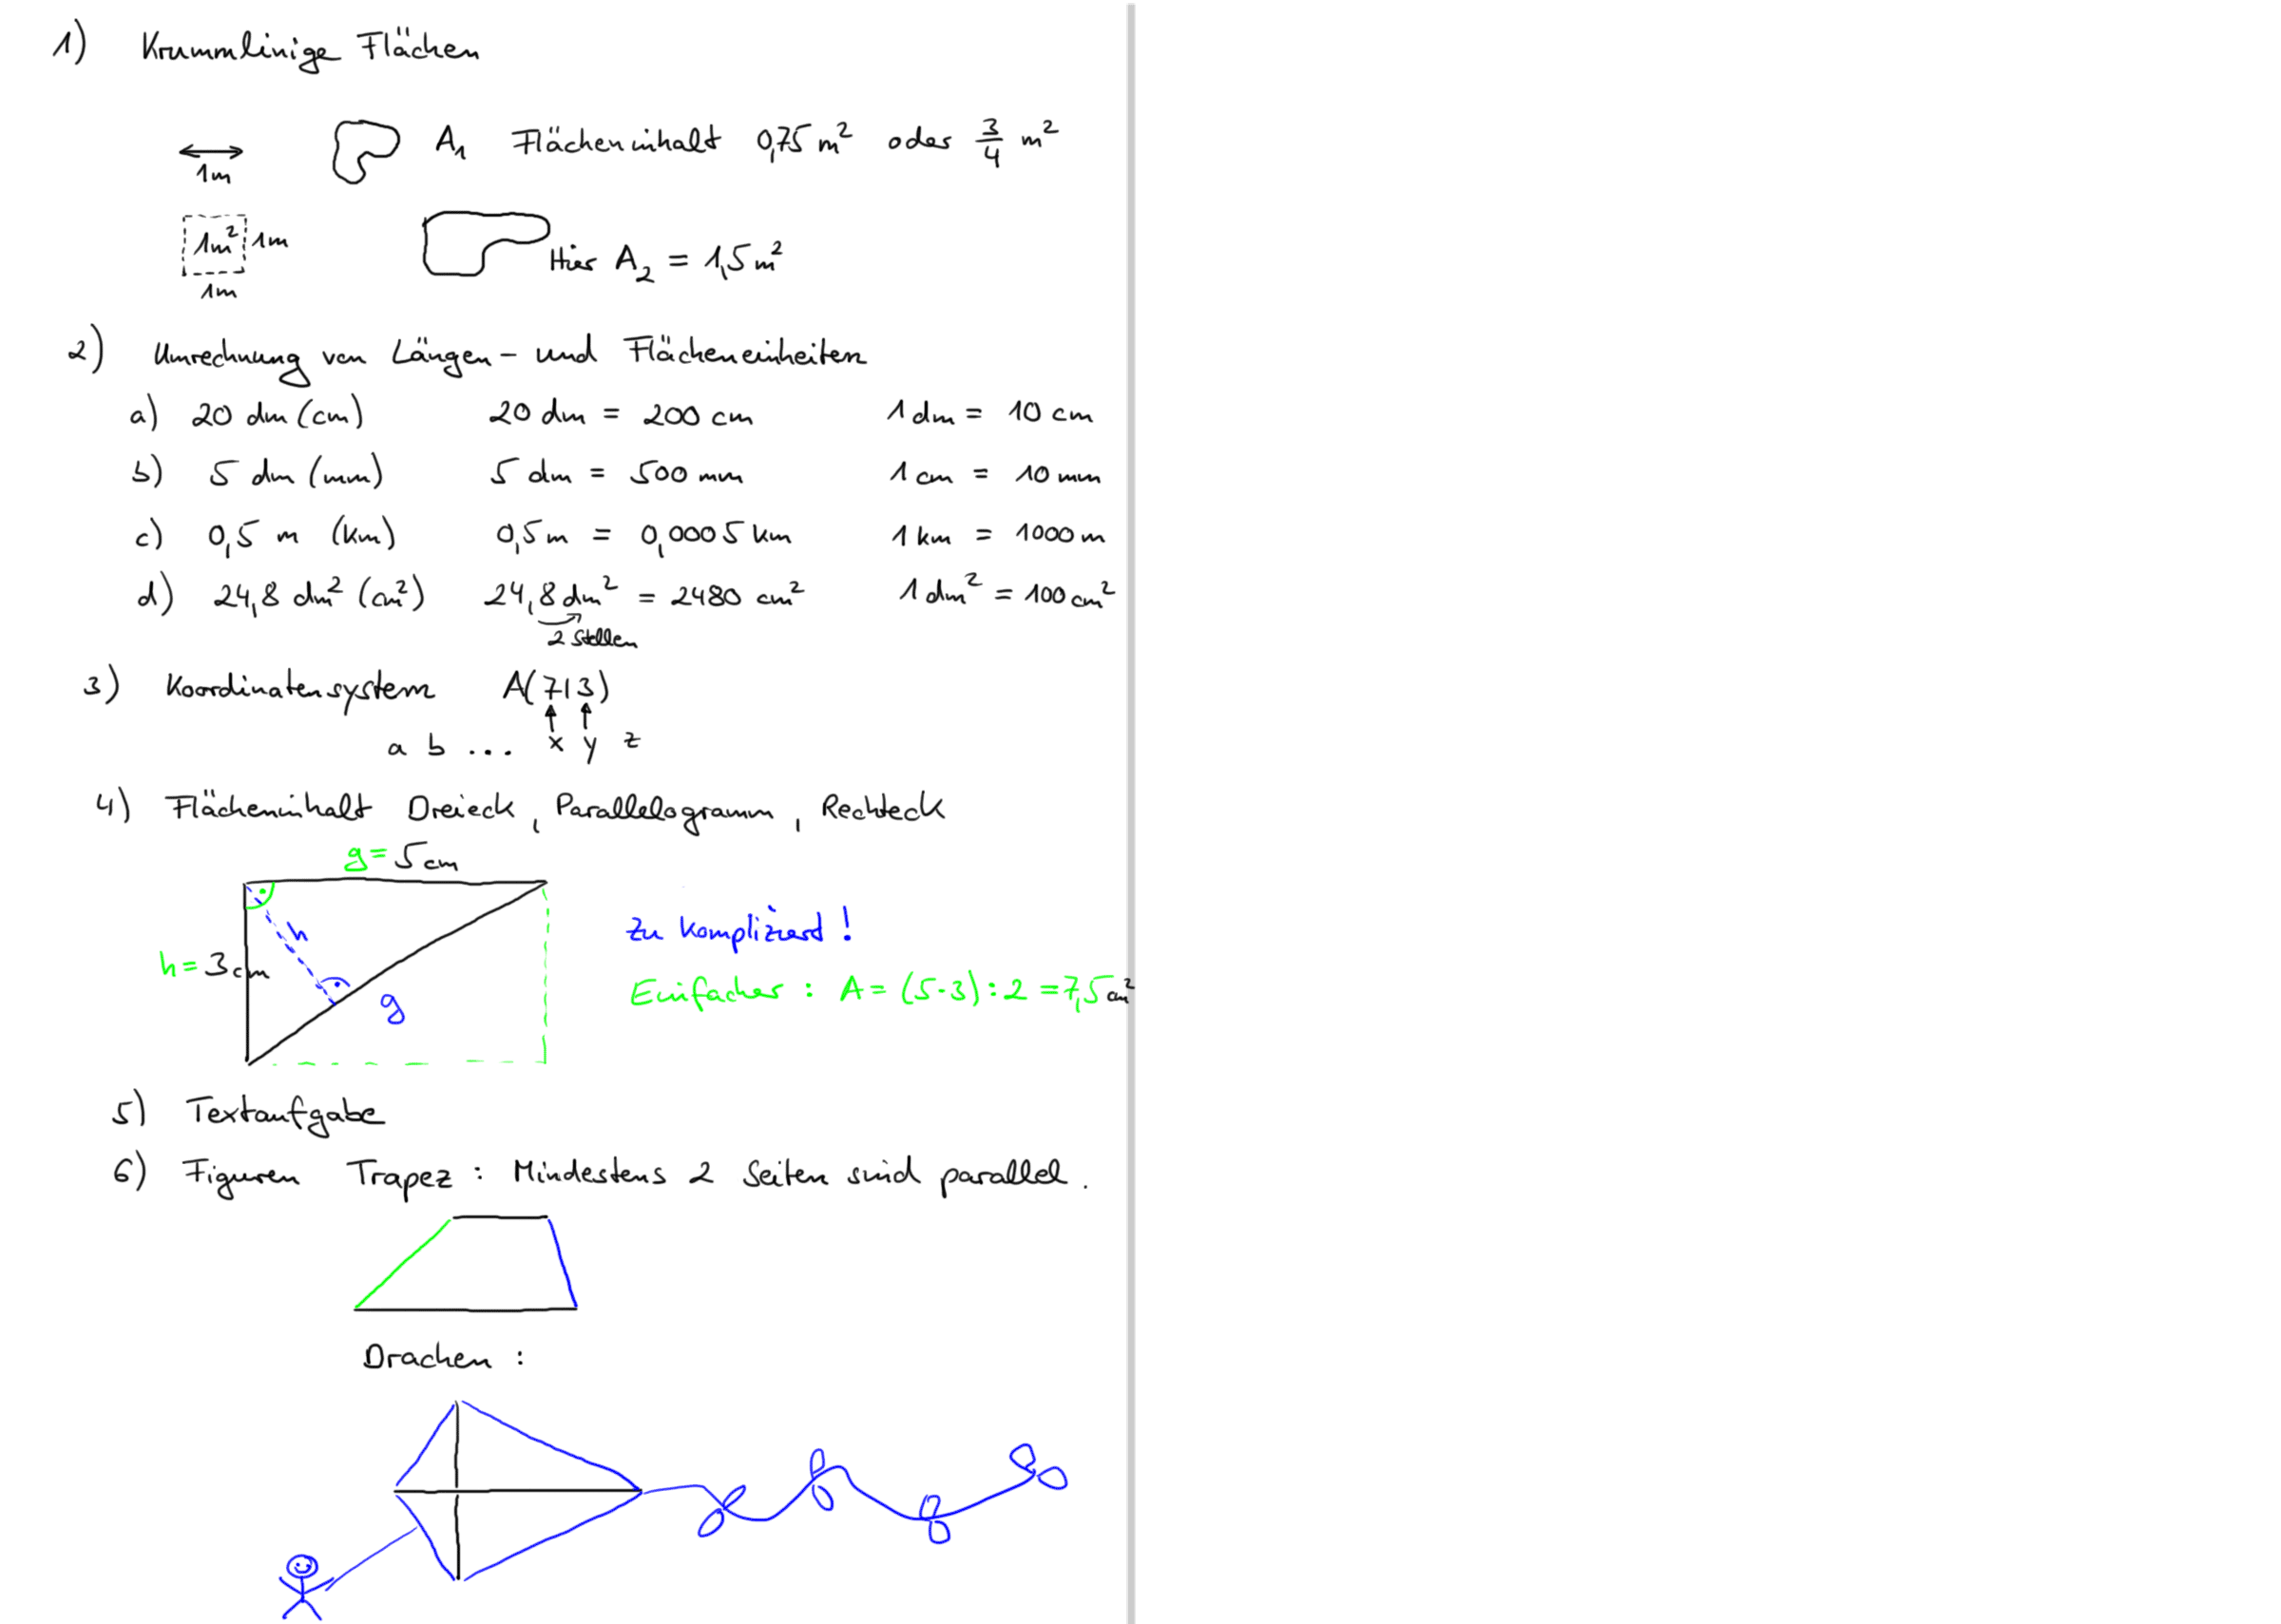 1) Krummlinige Flächen
1m A₁ Flächeninhalt 0,75 m² oder 3/4 m²
1m² 1m
1m
Hier A₂ = 1,5 m²
2) Umrechnung von Längen- und Flächeneinheiten
a) 20 dm (cm) 20 dm = 200 cm 1 dm = 10 cm
b) 5 dm (mm) 5 dm = 500 mm 1 cm = 10 mm
c) 0,5 m (km) 0,5 m = 0,0005 km 1 km = 1000 m
d) 24,8 dm² (cm²) 24,8 dm² = 2480 cm² 1 dm² = 100 cm²
2 Stellen
3) Koordinatensystem A(7|3)
a b ... x y z
4) Flächeninhalt Dreieck, Parallelogramm, Rechteck
g = 5 cm
h
Zu kompliziert!
h = 3 cm
g
Einfacher: A = (5·3):2 = 7,5 cm²
5) Textaufgabe
6) Figuren Trapez: Mindestens 2 Seiten sind parallel.
Drachen: